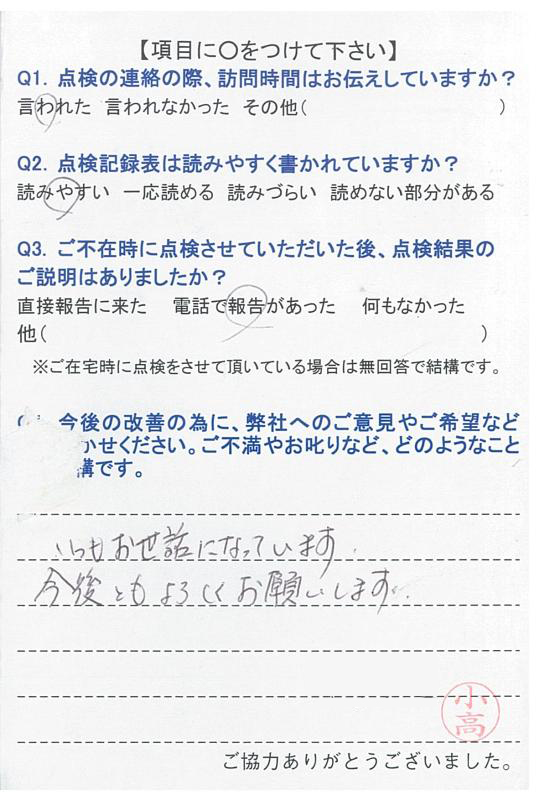 【項目に〇をつけて下さい】
Q1. 点検の連絡の際、訪問時間はお伝えしていますか？
言われた 言われなかった その他( )
Q2. 点検記録表は読みやすく書かれていますか？
読みやすい 一応読める 読みづらい 読めない部分がある
Q3. ご不在時に点検させていただいた後、点検結果の
ご説明はありましたか？
直接報告に来た 電話で報告があった 何もなかった
他( )
※ご在宅時に点検をさせて頂いている場合は無回答で結構です。
今後の改善の為に、弊社へのご意見やご希望など
かせください。ご不満やお叱りなど、どのようなこと
構です。
いつもお世話になっています.
今後ともよろしくお願いします.
小高
ご協力ありがとうございました。